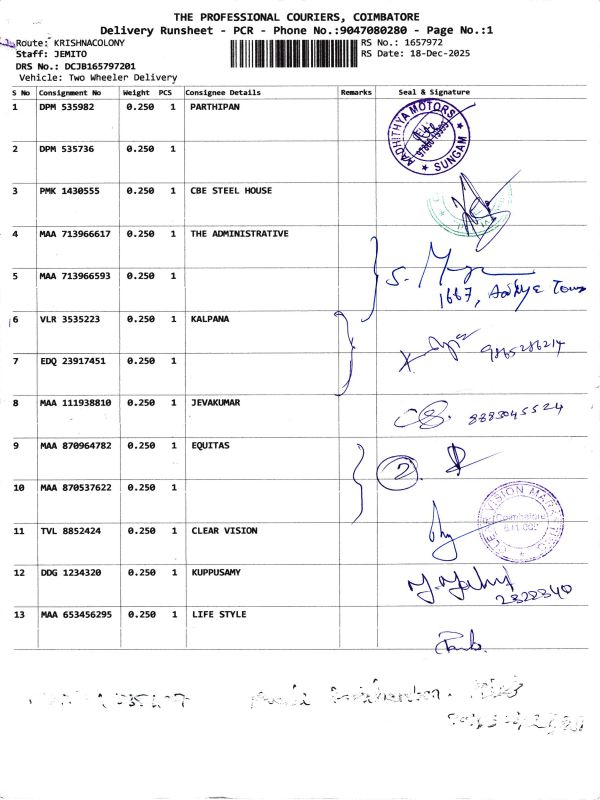 THE PROFESSIONAL COURIERS, COIMBATORE
Delivery Runsheet - PCR - Phone No.:9047080280 - Page No.:1
Route: KRISHNACOLONY RS No.: 1657972
Staff: JEMITO RS Date: 18-Dec-2025
DRS No.: DCJB165797201
Vehicle: Two Wheeler Delivery
S No Consignment No Weight PCS Consignee Details Remarks Seal & Signature
1 DPM 535982 0.250 1 PARTHIPAN
AADHITHYA MOTORS
SUNGAM
2 DPM 535736 0.250 1
3 PMK 1430555 0.250 1 CBE STEEL HOUSE
4 MAA 713966617 0.250 1 THE ADMINISTRATIVE
5 MAA 713966593 0.250 1
1667,
6 VLR 3535223 0.250 1 KALPANA
9865286214
7 EDQ 23917451 0.250 1
8 MAA 111938810 0.250 1 JEVAKUMAR
8883045524
9 MAA 870964782 0.250 1 EQUITAS
2
10 MAA 870537622 0.250 1
Coimbatore
11 TVL 8852424 0.250 1 CLEAR VISION
12 DDG 1234320 0.250 1 KUPPUSAMY
2322340
13 MAA 653456295 0.250 1 LIFE STYLE